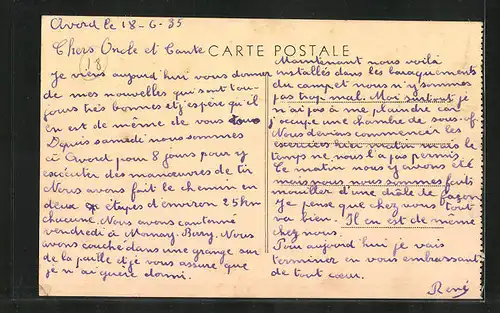 Avord le 18-6-35
Chers Oncle et Tante
CARTE POSTALE
(18)
Je viens aujourd'hui vous donner
de mes nouvelles qui sont tou-
jours très bonnes et j'espère qu'il
en est de même de vous tous
Depuis samedi nous sommes
à Avord pour 8 jours pour y
exécuter des manœuvres de tir
Nous avons fait le chemin en
deux étapes d'environ 25 km
chacune. Nous avons cantonné
vendredi à Mornay-Berry. Nous
avons couché dans une grange sur
de la paille et je vous assure que
je n'ai guère dormi.
Maintenant nous voilà
installés dans les baraquements
du camp et nous n'y sommes
pas trop mal. Moi surtout je
n'ai pas à me plaindre car
j'occupe une chambre de sous-of.
Nous devions commencer les
exercices hier matin mais le
temps ne nous l'a pas permis.
Ce matin nous y avons été
mais nous nous sommes faits
mouiller d'une drôle de façon
Je pense que chez vous tout
va bien. Il en est de même
chez nous.
Pour aujourd'hui je vais
terminer en vous embrassant
de tout cœur.
René